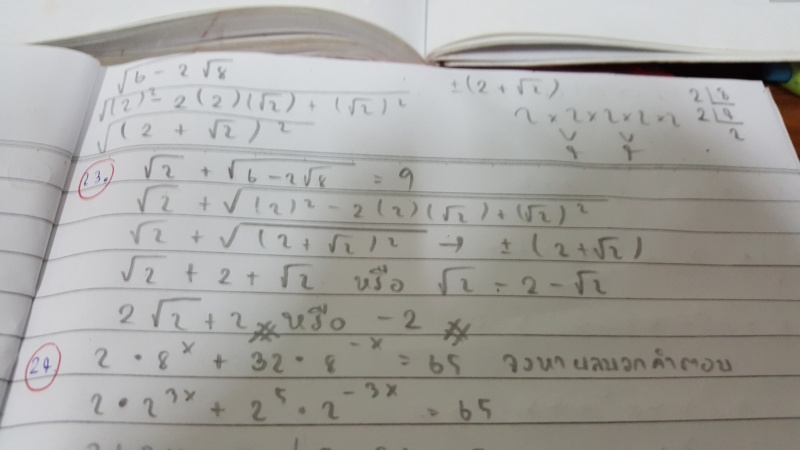 √6 - 2√8
√(2)² - 2(2)(√2) + (√2)² ±(2 + √2)
√(2 + √2)² 2 × 2 × 2 × 2 × 2 2 8
4 4 2 4
2
23. √2 + √6 - 2√8 = 9
√2 + √(2)² - 2(2)(√2) + (√2)²
√2 + √(2 + √2)² → ±(2 + √2)
√2 + 2 + √2 หรือ √2 - 2 - √2
2√2 + 2 หรือ - 2
24. 2 • 8ˣ + 32 • 8⁻ˣ = 65 จงหาผลบวกคำตอบ
2 • 2³ˣ + 2⁵ • 2⁻³ˣ = 65